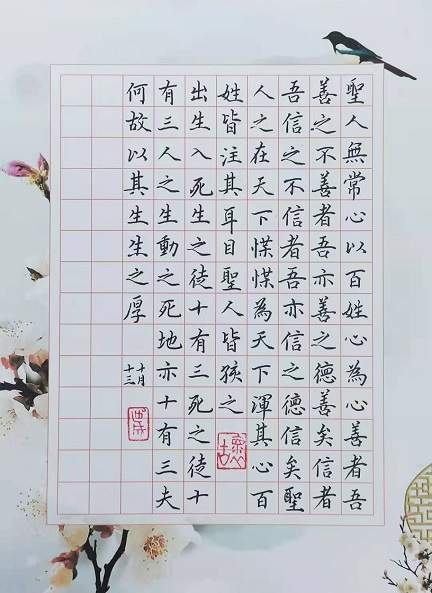 聖人無常心以百姓心為心善者吾
善之不善者吾亦善之德善矣信者
吾信之不信者吾亦信之德信矣聖
人之在天下惵惵為天下渾其心百
姓皆注其耳目聖人皆孩之
出生入死生之徒十有三死之徒十
有三人之生動之死地亦十有三夫
何故以其生生之厚
十月
十三